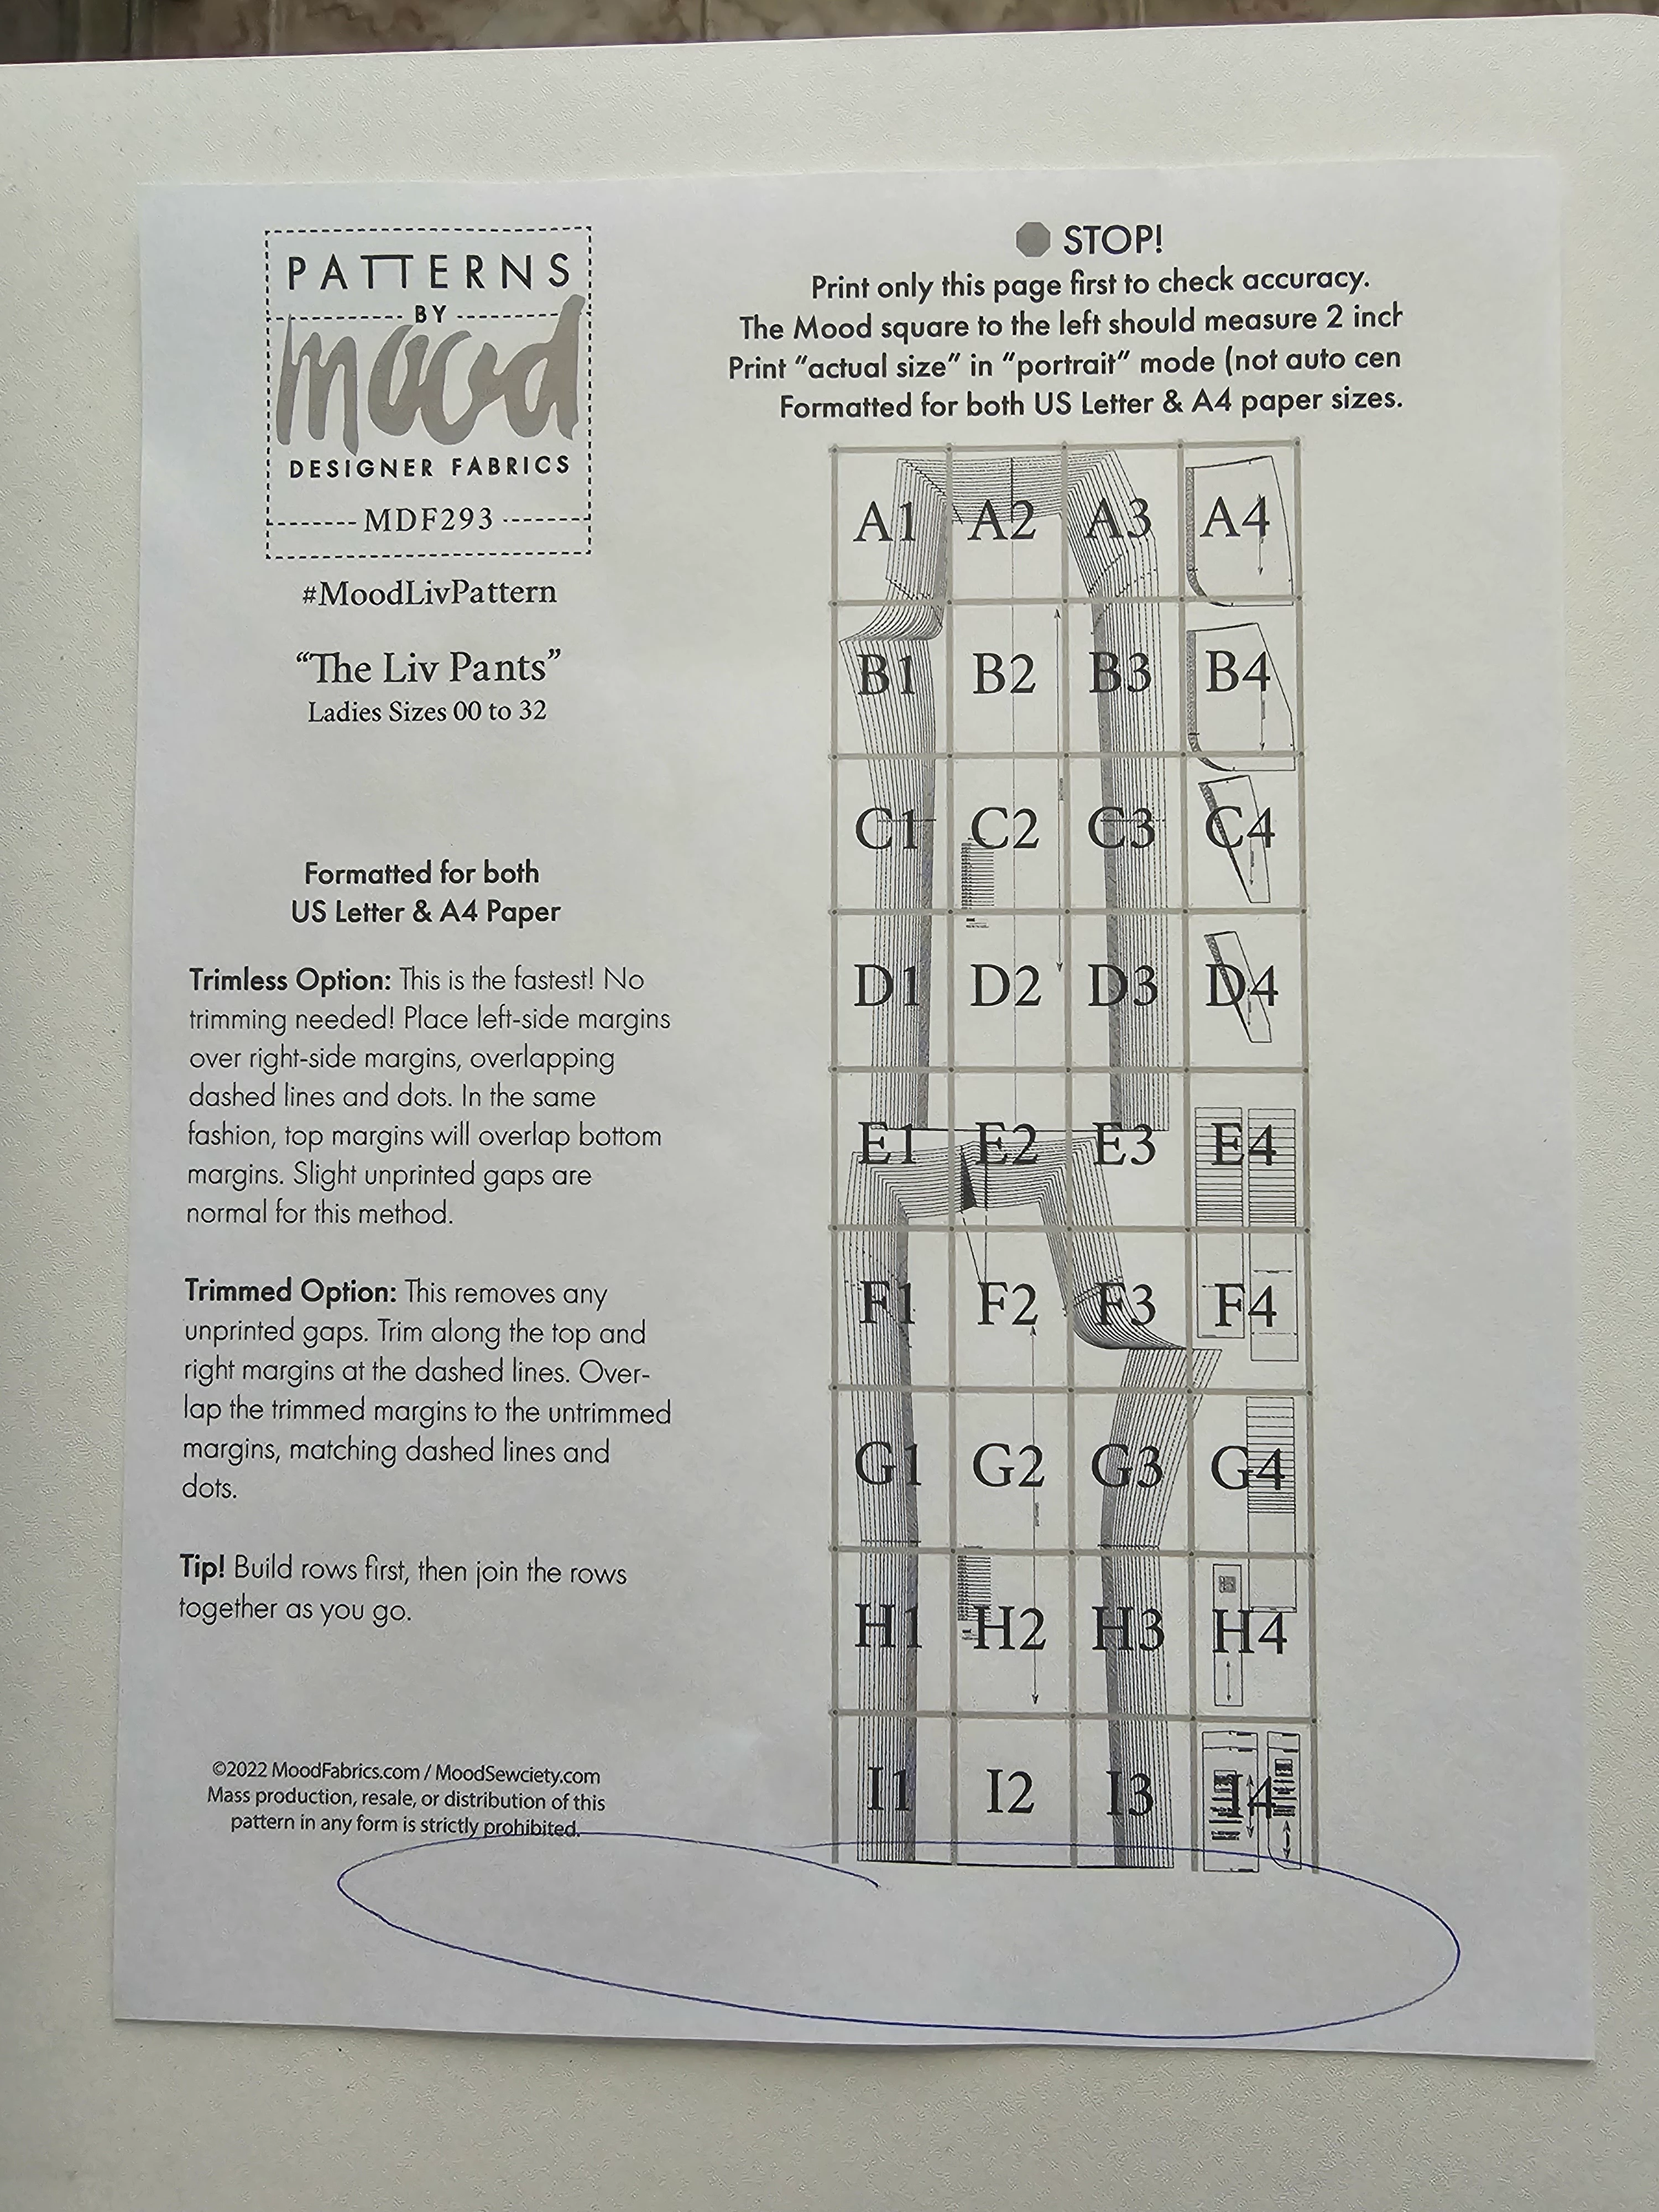 PATTERNS
BY
mood
DESIGNER FABRICS
MDF293
#MoodLivPattern
“The Liv Pants”
Ladies Sizes 00 to 32
Formatted for both
US Letter & A4 Paper
Trimless Option: This is the fastest! No
trimming needed! Place left-side margins
over right-side margins, overlapping
dashed lines and dots. In the same
fashion, top margins will overlap bottom
margins. Slight unprinted gaps are
normal for this method.
Trimmed Option: This removes any
unprinted gaps. Trim along the top and
right margins at the dashed lines. Over-
lap the trimmed margins to the untrimmed
margins, matching dashed lines and
dots.
Tip! Build rows first, then join the rows
together as you go.
©2022 MoodFabrics.com / MoodSewciety.com
Mass production, resale, or distribution of this
pattern in any form is strictly prohibited.
STOP!
Print only this page first to check accuracy.
The Mood square to the left should measure 2 inch
Print “actual size” in “portrait” mode (not auto cen
Formatted for both US Letter & A4 paper sizes.
A1 A2 A3 A4
B1 B2 B3 B4
C1 C2 C3 C4
D1 D2 D3 D4
E1 E2 E3 E4
F1 F2 F3 F4
G1 G2 G3 G4
H1 H2 H3 H4
I1 I2 I3 I4